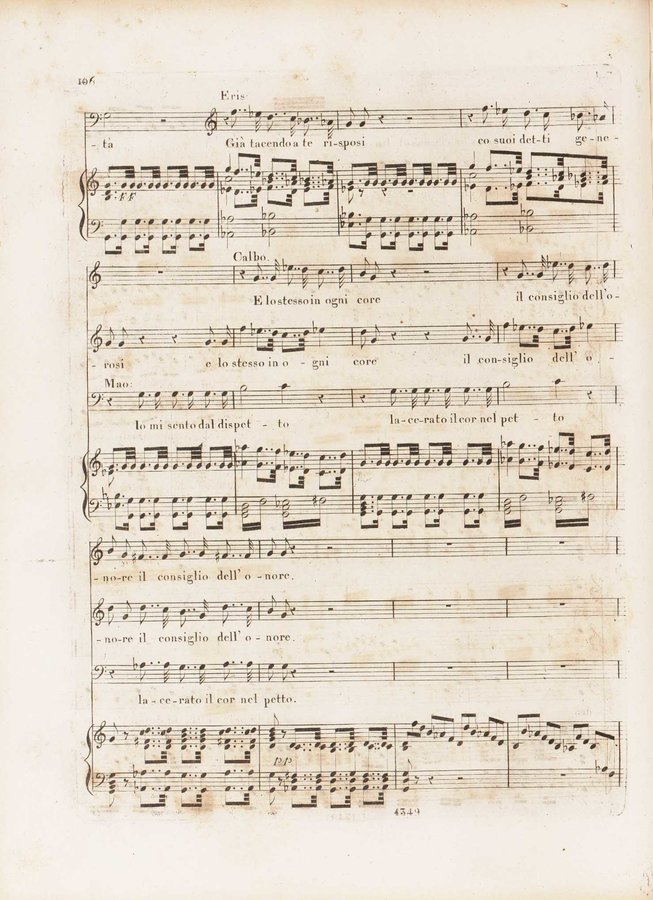 106
Eris
- tà Già tacendo a te ri-sposi co suoi det-ti ge-ne-
FF
Calbo.
E lo stesso in ogni core il consiglio dell'o-
- rosi e lo stesso in o - gni core il con-siglio dell' o -
Mao:
Io mi sento dal dispet - to la-ce-rato il cor nel pet - to
- no-re il consiglio dell' o -nore.
- no-re il consiglio dell' o - nore.
la - ce-rato il cor nel petto.
PP
4349